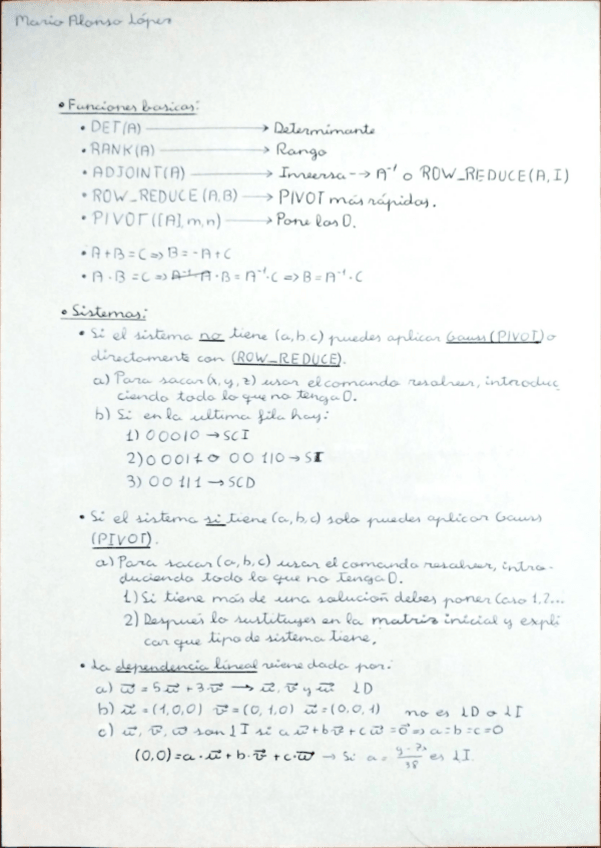 Mario Alonso López
• Funciones basicas:
• DET(A) → Determinante
• RANK(A) → Rango
• ADJOINT(A) → Inversa --> A⁻¹ o ROW_REDUCE(A, I)
• ROW_REDUCE (A,B) → PIVOT más rápidos.
• PIVOT([A], m, n) → Pone los 0.
• A+B=C => B=-A+C
• A·B=C => A⁻¹·A·B=A⁻¹·C => B=A⁻¹·C
• Sistemas:
• Si el sistema no tiene (a,b,c) puedes aplicar Gauss (PIVOT) o
directamente con (ROW_REDUCE).
a) Para sacar (x, y, z) usar el comando resolver, introduc
ciendo todo lo que no tenga 0.
b) Si en la ultima fila hay:
1) 0 0 0 1 0 → SCI
2) 0 0 0 1 1 o 0 0 1 1 0 → SI
3) 0 0 1 1 1 → SCD
• Si el sistema si tiene (a,b,c) solo puedes aplicar Gauss
(PIVOT).
a) Para sacar (a,b,c) usar el comando resolver, intro-
duciendo todo lo que no tenga 0.
1) Si tiene más de una solución debes poner Caso 1,2...
2) Después lo sustituyes en la matriz inicial y expli
car que tipo de sistema tiene.
• La dependencia lineal viene dada por:
a) w⃗ = 5u⃗ + 3v⃗ → u⃗, v⃗ y w⃗ LD
b) u⃗ = (1,0,0) v⃗ = (0,1,0) u⃗ = (0,0,1) no es LD o LI
c) u⃗, v⃗, w⃗ son LI si a u⃗ + b v⃗ + c w⃗ = 0⃗ => a=b=c=0
(0,0) = a·u⃗ + b·v⃗ + c·w⃗ → Si a = es LI.